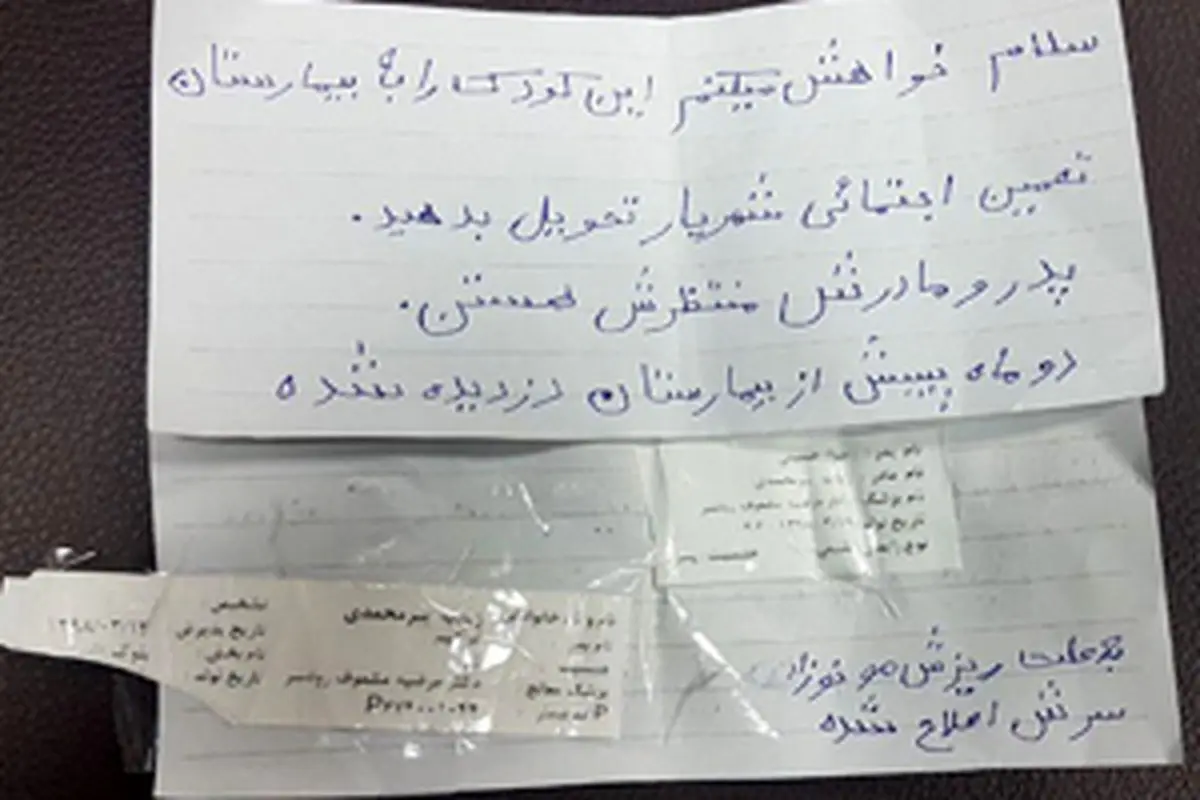 سلام خواهش میکنم این کودک را به بیمارستان
تعمین اجتمائی شهریار تحویل بدهید.
پدر و مادرش منتظرش هستن.
دو ماه پیش از بیمارستان دزدیده شده
نام پدر:
نام مادر:
تاریخ تولد
نام و نام خانوادگی: میرمحمدی
نام پدر
پزشک معالج: دکتر مرضیه
تشخیص:
تاریخ پذیرش
نام بخش:
تاریخ تولد:
به علت ریزش مو نوزاد
سرش اصلاح شده